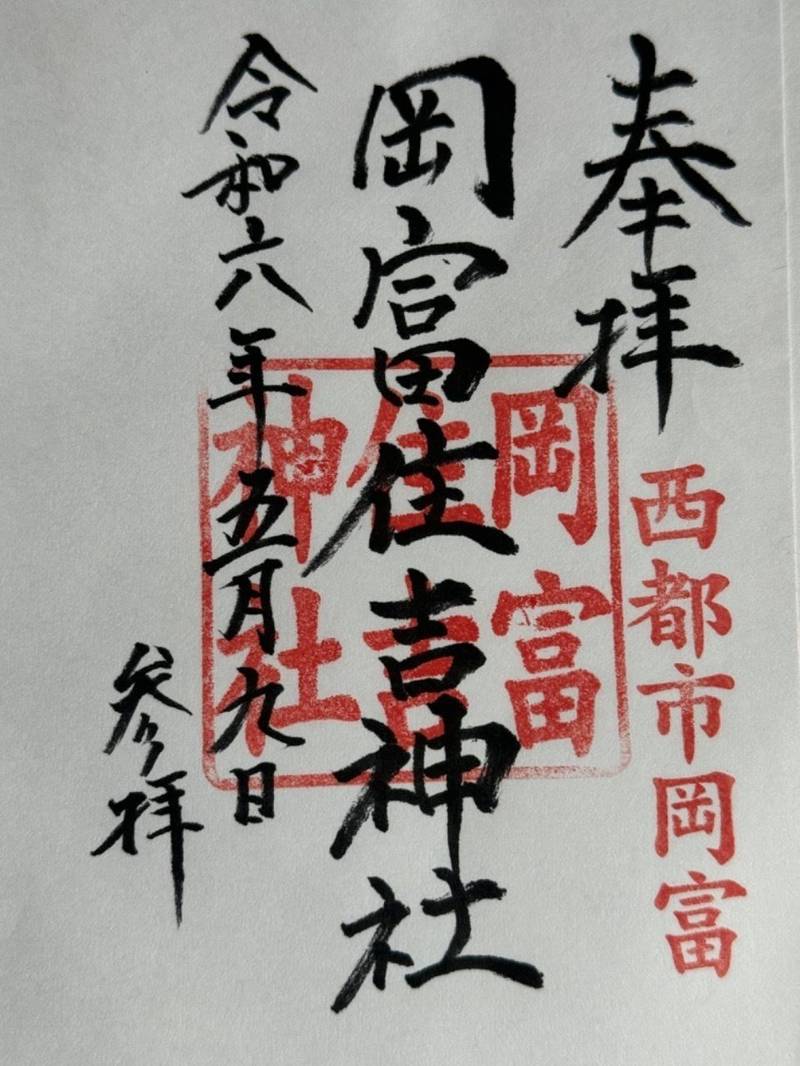 奉拝
西都市岡富
岡富住吉神社
岡富
住吉
神社
令和六年五月九日
参拝